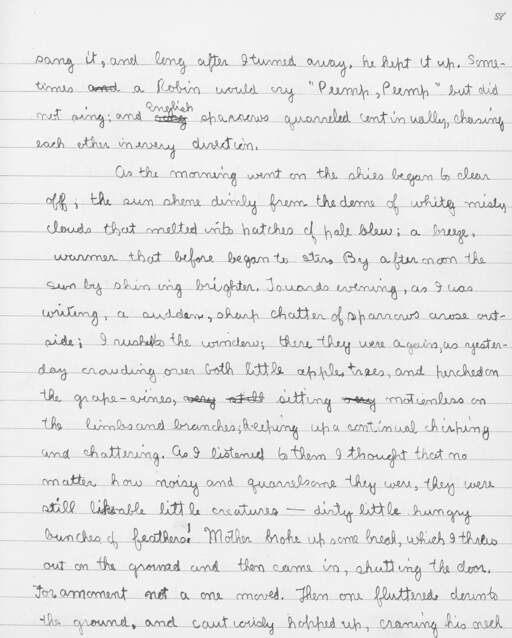 58
sang it, and long after I turned away, he kept it up. Some-
times and a Robin would cry "Peemp, Peemp" but did
not sing: and English sparrows quarreled continually, chasing
each other in every direction.
As the morning went on the skies began to clear
off; the sun shone dimly from the dome of white misty
clouds that melted into patches of pale blew; a breeze,
warmer that before began to stir. By afternoon the
sun by shining brighter. Towards evening, as I was
writing, a sudden, sharp chatter of sparrows arose out-
side; I rushed to the window; there they were again, as yester-
day crowding over both little apple trees, and perched on
the grape-vines, very still sitting very motionless on
the limbs and branches, keeping up a continual chirping
and chattering. As I listened to them I thought that no
matter how noisy and quarrelsome they were, they were
still likeable little creatures — dirty little hungry
bunches of feathers! Mother broke up some bread, which I threw
out on the ground and then came in, shutting the door.
For a moment not a one moved. Then one fluttered down to
the ground, and cautiously hopped up, craning his neck